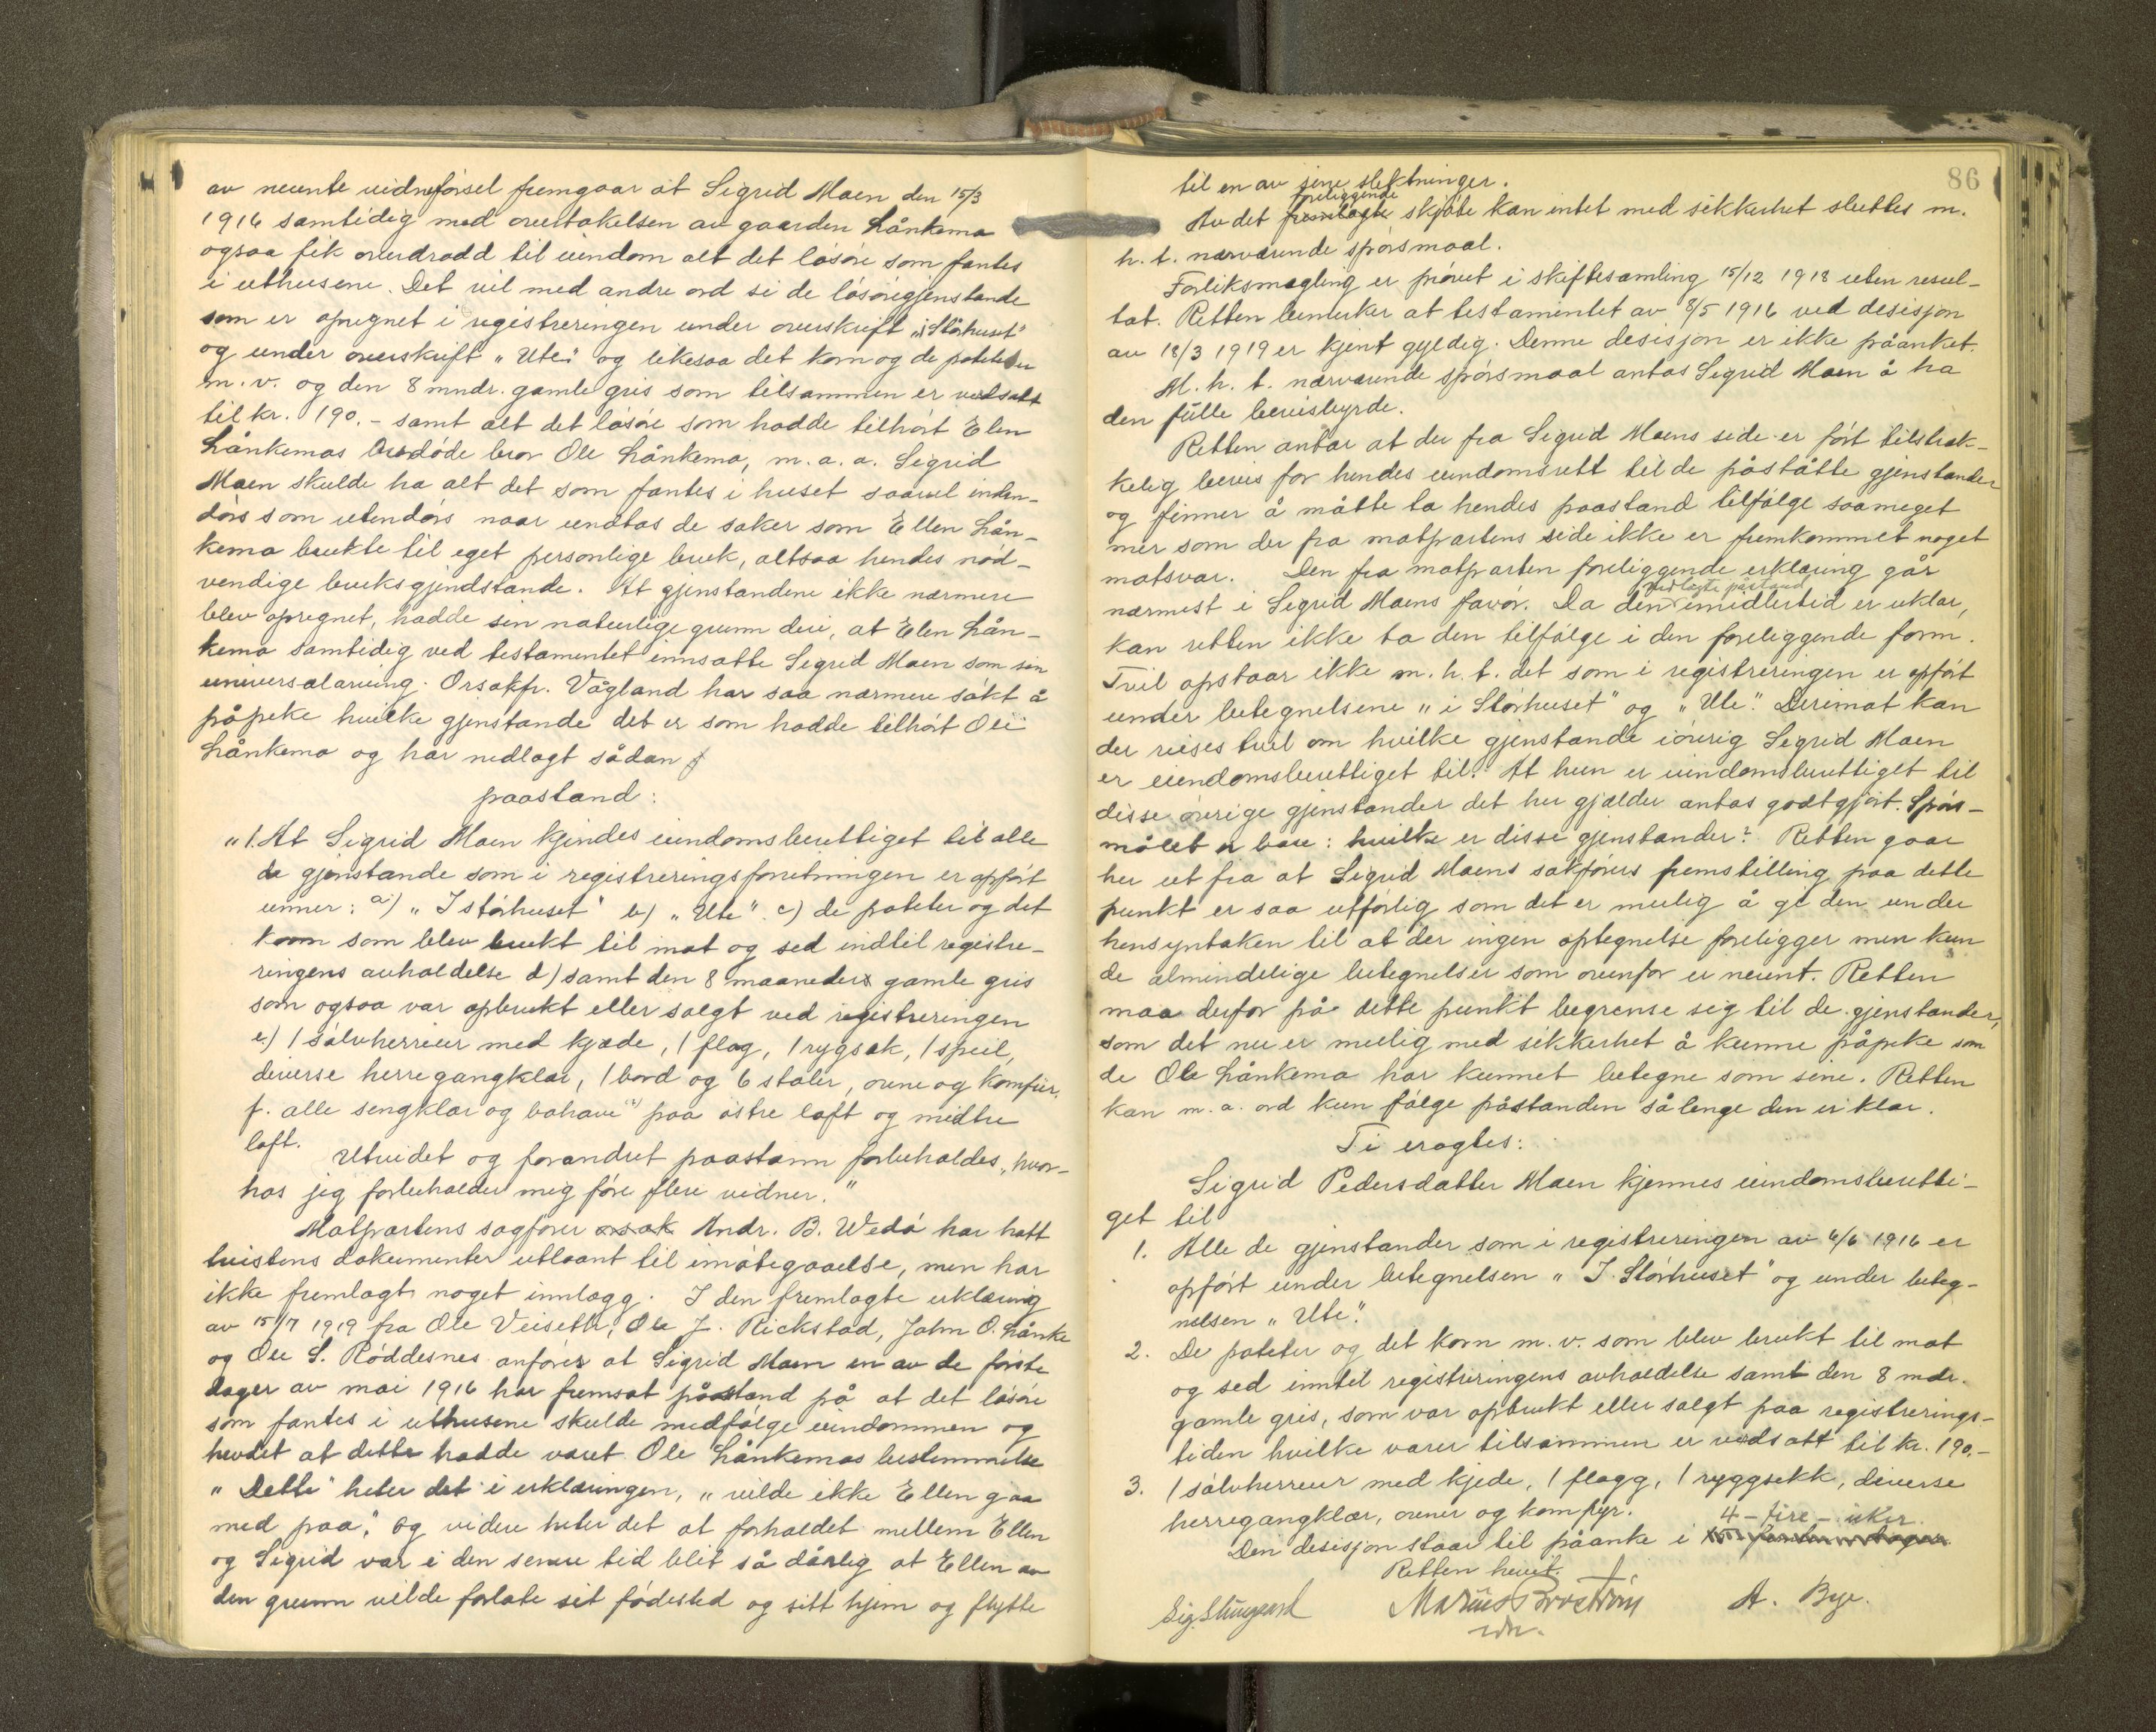 av nevnte vidneførsel fremgaar at Sigrid Moen den 15/3
1916 samtidig med overtakelsen av gaarden Lånkemo
ogsaa fik overdradd til eiendom alt det løsøre som fantes
i uthusene. Det vil med andre ord si de løsøregjenstande
som er opregnet i registreringen under overskrift „i Stórhuset"
og under overskrift „Ute" og likesaa det korn og de poteter
m.v. og den 8 mndr. gamle gris som tilsammen er verdsatt
til kr. 190.- samt alt det løsøre som hadde tilhørt Elen
Lånkemos avdøde bror Ole Lånkemo, m.a.a. Sigrid
Moen skulde ha alt det som fantes i huset saavel inden-
dørs som utendørs naar undtas de saker som Ellen Lån-
kemo brukte til eget personlige bruk, altsaa hendes nød-
vendige bruksgjendstande. At gjenstandene ikke nærmere
blev opregnet, hadde sin naturlige grunn deri, at Elen Lån-
kemo samtidig ved testamentet innsatte Sigrid Moen som sin
universalarving. Orsakfr. Vågland har saa nærmere søkt å
påpeke hvilke gjenstande det er som hadde tilhørt Ole
Lånkemo og har nedlagt sådan
paastand:
„1. At Sigrid Moen kjendes eiendomsberettiget til alle
de gjenstande som i registreringsforretningen er opført
unner: a) „I stórhuset" b) „Ute" c) de poteter og det
korn som blev brukt til mat og sed indtil registre-
ringens avholdelse d) samt den 8 maaneders gamle gris
som ogsaa var opbrukt eller solgt ved registreringen
e) 1 sølvherreur med kjæde, 1 flag, 1 rygsæk, 1 speil,
diverse herregangklær, 1 bord og 6 stoler, ovne og komfur,
f. alle sengklær og bohave paa østre loft og midtre
loft.
Utvidet og forandret paastann forbeholdes, hvor-
hos jeg forbeholder mig føre flere vidner."
Motpartens sagfører o.r.sak Andr. B. Wedø har hatt
tvistens dokumenter utlaant til imøtegaaelse, men har
ikke fremlagt noget innlægg. I den fremlagte erklæring
av 15/7 1919 fra Ole Veiseth, Ole J. Rickstad, John O. Lånke
og Ole S. Røddesnes anføres at Sigrid Moen en av de første
dager av mai 1916 har fremsat påstand på at det løsøre
som fantes i uthusene skulde medfølge eiendommen og
hevdet at dette hadde været Ole Lånkemos bestemmelse
„Dette" heter det i erklæringen, „vilde ikke Ellen gaa
med paa", og videre heter det at forholdet mellem Ellen
og Sigrid var i den senere tid blit så dårlig at Ellen av
den grunn vilde forlate sit fødested og sitt hjem og flytte
86
til en av sine slektninger.
foreliggende
Av det fremlagte skjøte kan intet med sikkerhet sluttes m.
h. t. nærværende spørsmaal.
Forliksmægling er prøvet i skiftesamling 15/12 1918 uten resul-
tat. Retten bemerker at testamentet av 8/5 1916 ved desisjon
av 18/3 1919 er kjent gyldig. Denne desisjon er ikke påanket.
M. h. t. nærværende spørsmaal antas Sigrid Moen å ha
den fulle bevisbyrde.
Retten antar at der fra Sigrid Moens side er ført tilstræk-
kelig bevis for hendes eiendomsrett til de påståtte gjenstander
og finner å måtte ta hendes paastand tilfølge saameget
mer som der fra motpartens side ikke er fremkommet noget
motsvar. Den fra motparten foreliggende erklæring går
nedlagte påstand
nærmest i Sigrid Moens favør. Da den imidlertid er uklar,
kan retten ikke ta den tilfølge i den foreliggende form.
Tvil opstaar ikke m. h. t. det som i registreringen er opført
under betegnelsene „i Stórhuset" og „Ute". Derimot kan
der reises tvil om hvilke gjenstande iøvrig Sigrid Moen
er eiendomsberettiget til. At hun er eiendomsberettiget til
disse øvrige gjenstander det her gjælder antas godtgjort. Spørs-
målet er bare: hvilke er disse gjenstander? Retten gaar
her ut fra at Sigrid Moens sakførers fremstilling paa dette
punkt er saa utførlig som det er mulig å gi den under
hensyntaken til at der ingen optegnelse foreligger men kun
de almindelige betegnelser som ovenfor er nevnt. Retten
maa derfor på dette punkt begrense sig til de gjenstander,
som det nu er mulig med sikkerhet å kunne påpeke som
de Ole Lånkemo har kunnet betegne som sine. Retten
kan m. a. ord kun følge påstanden så lenge den er klar.
Ti eragtes:
Sigrid Pedersdatter Moen kjennes eiendomsberetti-
get til
1. Alle de gjenstander som i registreringen av 6/6 1916 er
opført under betegnelsen „I Stórhuset" og under beteg-
nelsen „Ute".
2. De poteter og det korn m. v. som blev brukt til mat
og sed inntil registreringens avholdelse samt den 8 mdr.
gamle gris, som var opbrukt eller solgt paa registrerings-
tiden hvilke varer tilsammen er verdsatt til kr. 190.-
3. 1 sølvherreur med kjede, 1 flagg, 1 ryggsekk, diverse
herregangklær, ovner og komfyr.
4 - fire - uker
Den desisjon staar til påanke i
Retten hevet.
Marius Broström
A. Bye.